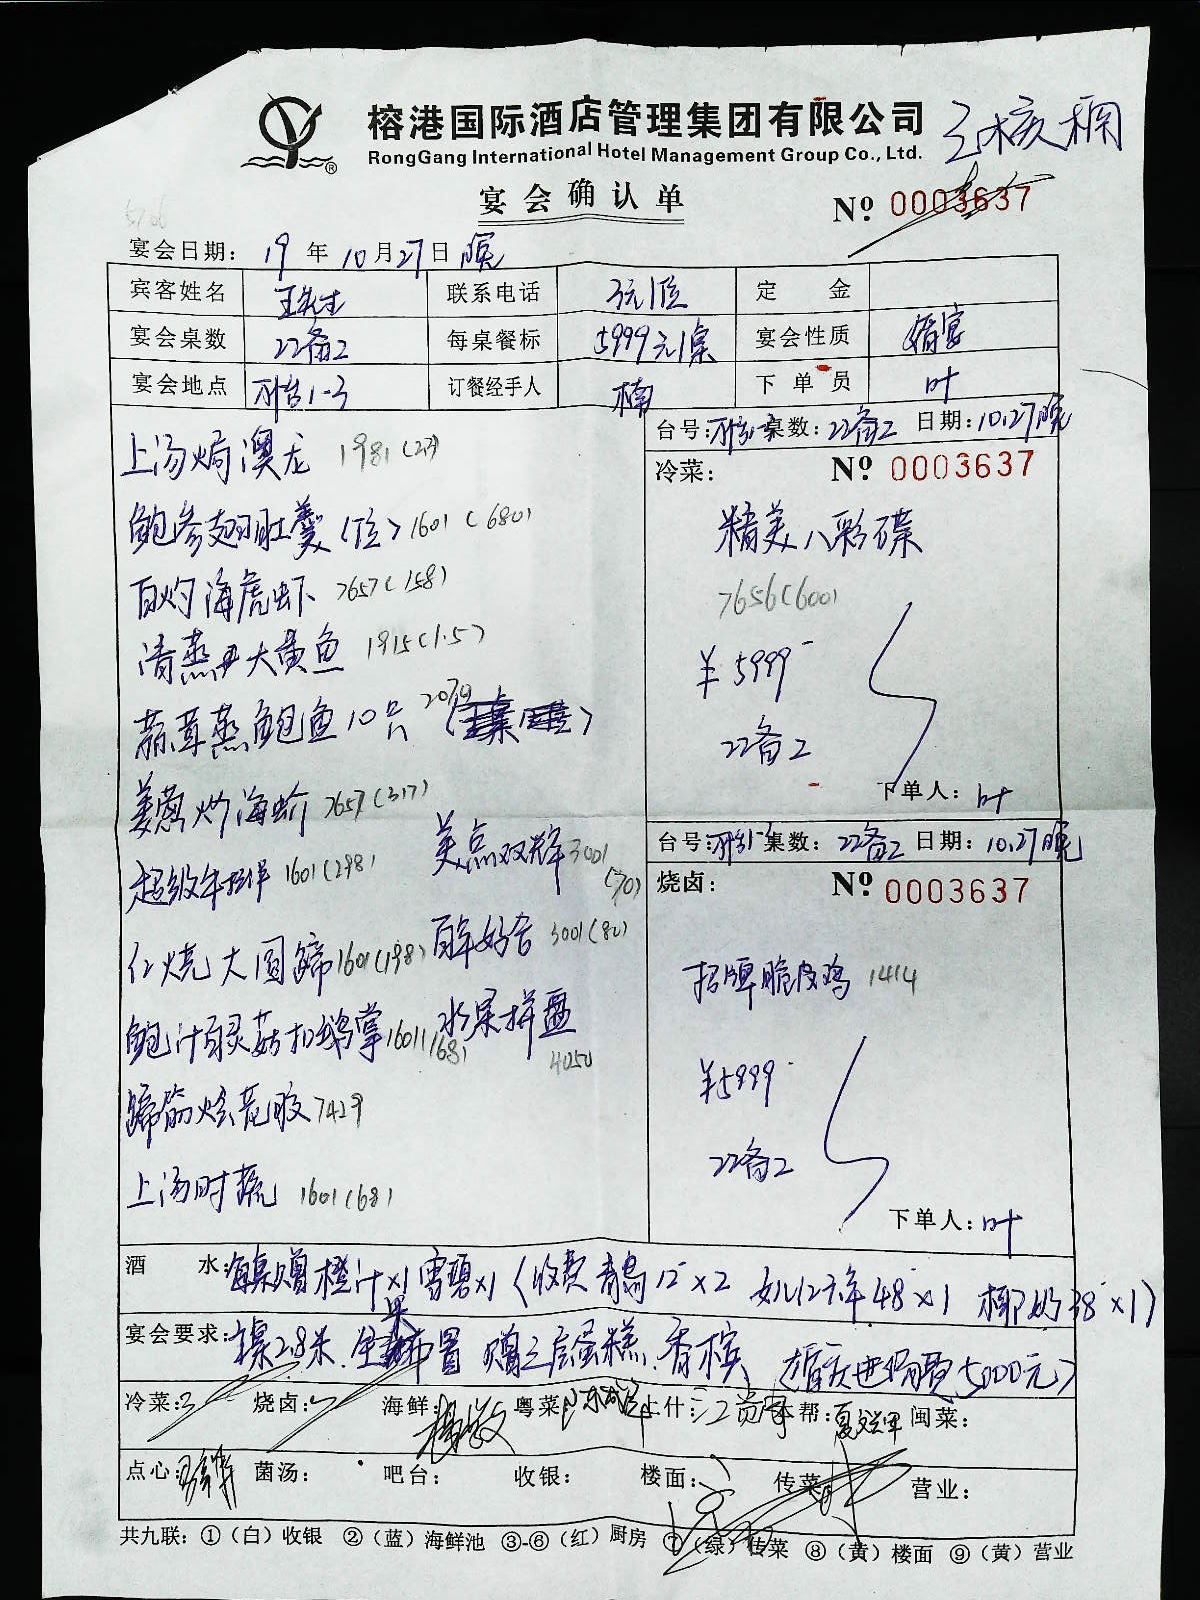 榕港国际酒店管理集团有限公司
RongGang International Hotel Management Group Co., Ltd.
宴会确认单
Nº 0003637
宴会日期: 19年10月27日晚
宾客姓名 王先生 联系电话 3元/位 定金
宴会桌数 22备2 每桌餐标 5999元/桌 宴会性质 婚宴
宴会地点 1-3 订餐经手人 楠 下单员 叶
台号: 桌数: 22备2 日期: 10.27晚
冷菜: Nº 0003637
精美八彩碟
7656(600)
¥5999-
22备2
下单人: 叶
上汤焗澳龙 1981(2)
鲍参翅肚羹(位) 1601(680)
白灼海虎虾 7657(158)
清蒸大黄鱼 1915(1.5)
蒜茸蒸鲍鱼10只
姜葱炒海蚧 7657(317)
超级牛排 1601(298)
红烧大圆蹄 1601(198)
鲍汁百灵菇扣鹅掌 1601(168)
蹄筋烩花胶 7429
上汤时蔬 1601(68)
美点双辉 3001(70)
百年好合 3001(80)
水果拼盘
4050
台号: 桌数: 22备2 日期: 10.27晚
烧卤: Nº 0003637
招牌脆皮鸡 1414
¥5999-
22备2
下单人: 叶
酒水: 每桌赠橙汁×1 雪碧×1 (收费青岛12-×2 48-×1 椰奶38-×1)
宴会要求: 主桌2.8米. 布置 赠三层蛋糕.香槟 (婚庆进场费5000元)
冷菜: 烧卤: 海鲜: 粤菜: 上什: 本帮: 闽菜:
点心: 菌汤: 吧台: 收银: 楼面: 传菜: 营业:
共九联: ①(白)收银 ②(蓝)海鲜池 ③-⑥(红)厨房 ⑦(绿)传菜 ⑧(黄)楼面 ⑨(黄)营业